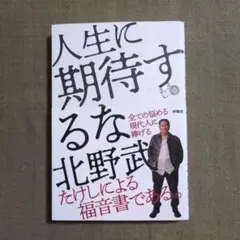 人生に
期待す
るな
北野武
全ての悩める
現代人に
捧げる
扶桑社
たけしによる
福音書である。